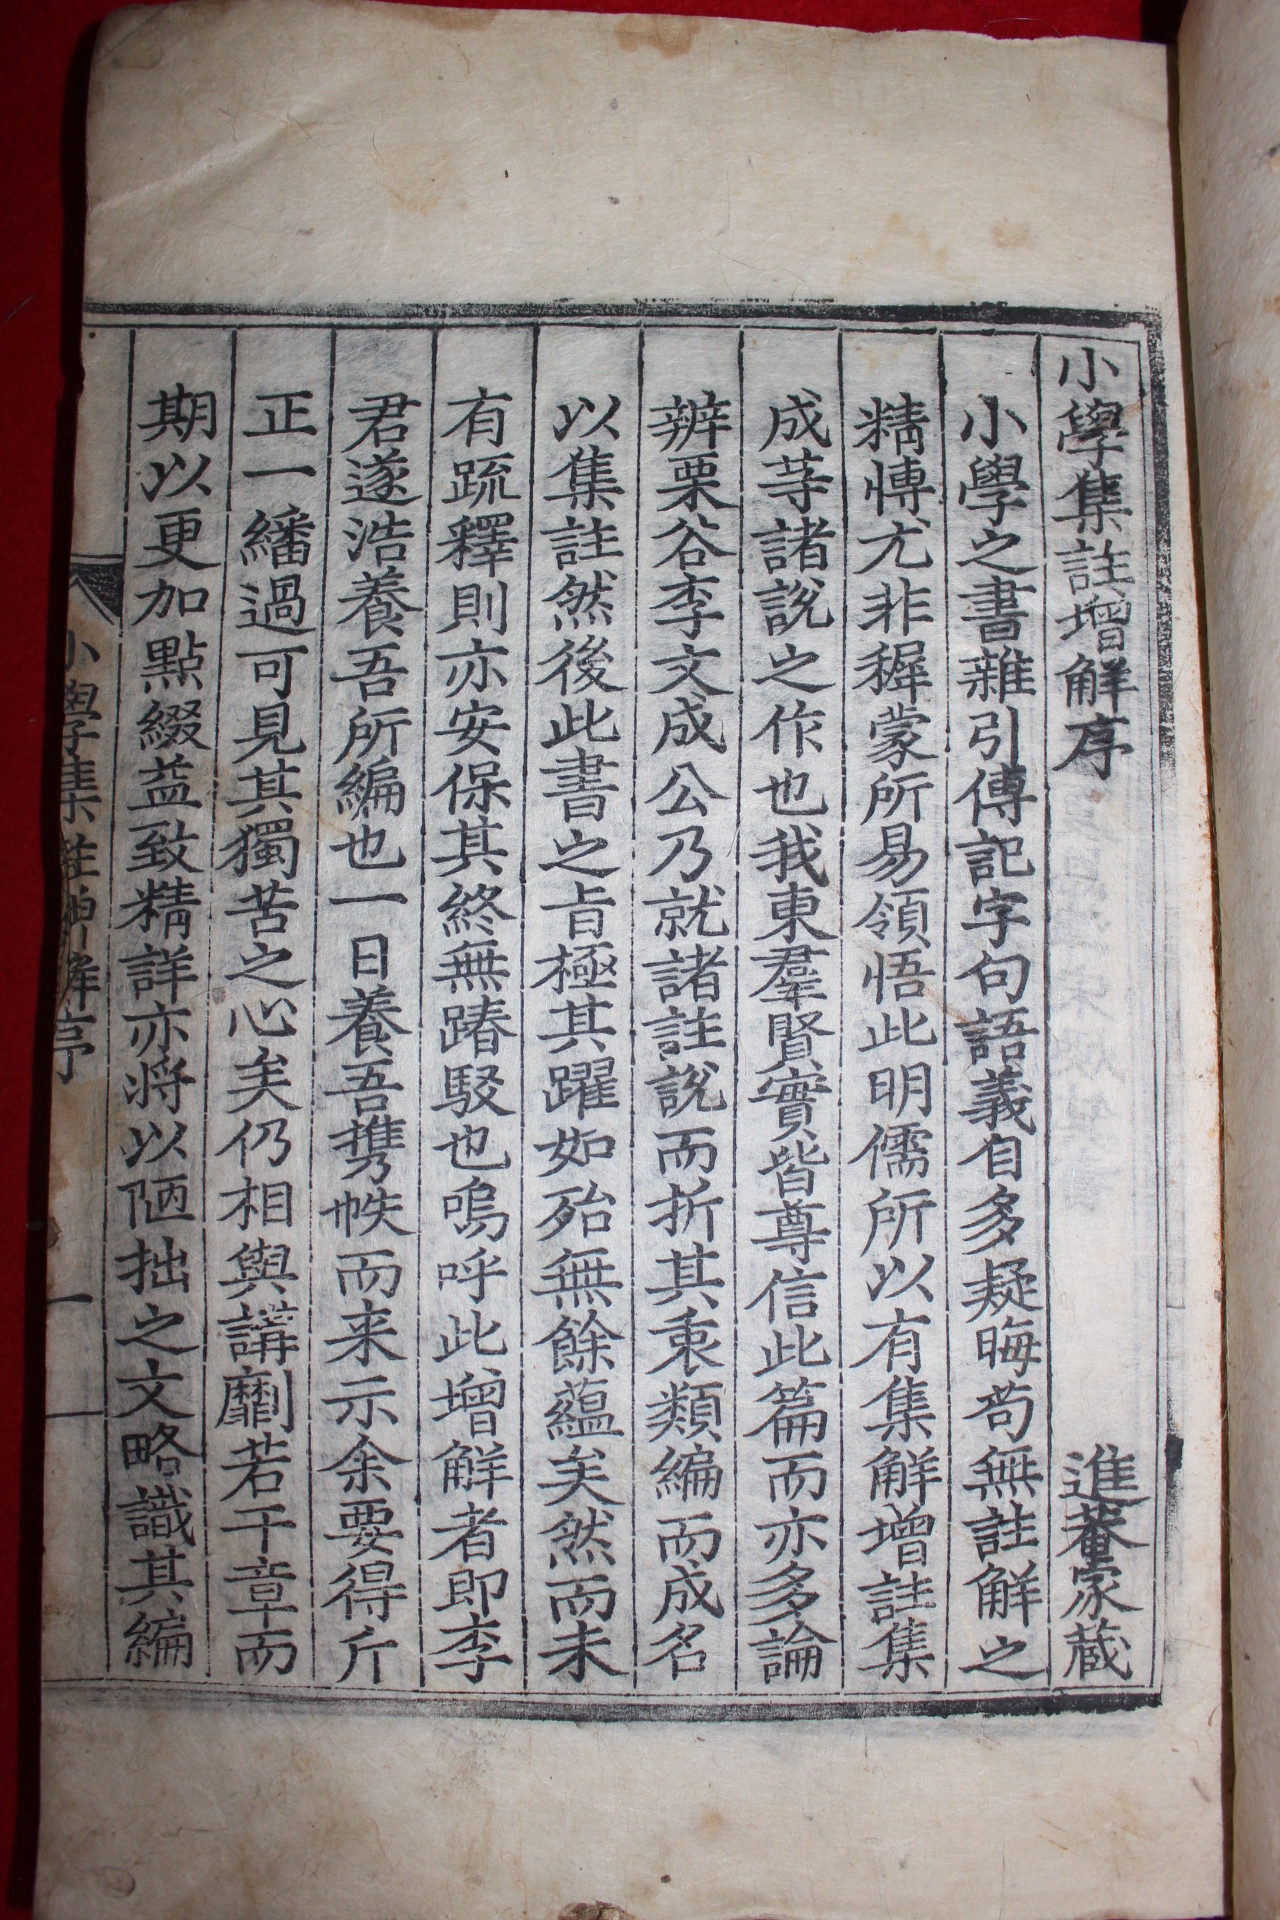 小學集註增解序 進菴家藏
小學之書雜引傳記字句語義自多疑晦苟無註解之
精博尤非穉蒙所易領悟此明儒所以有集解增註集
成等諸說之作也我東羣賢實皆尊信此篇而亦多論
辨栗谷李文成公乃就諸註說而折其衷類編而成名
以集註然後此書之旨極其躍如殆無餘蘊矣然而未
有疏釋則亦安保其終無踳駁也嗚呼此增解者即李
君遂浩養吾所編也一日養吾携帙而来示余要得斤
正一繙過可見其獨苦之心矣仍相與講劘若干章而
期以更加點綴益致精詳亦将以陋拙之文略識其編
小學集註增解序 一